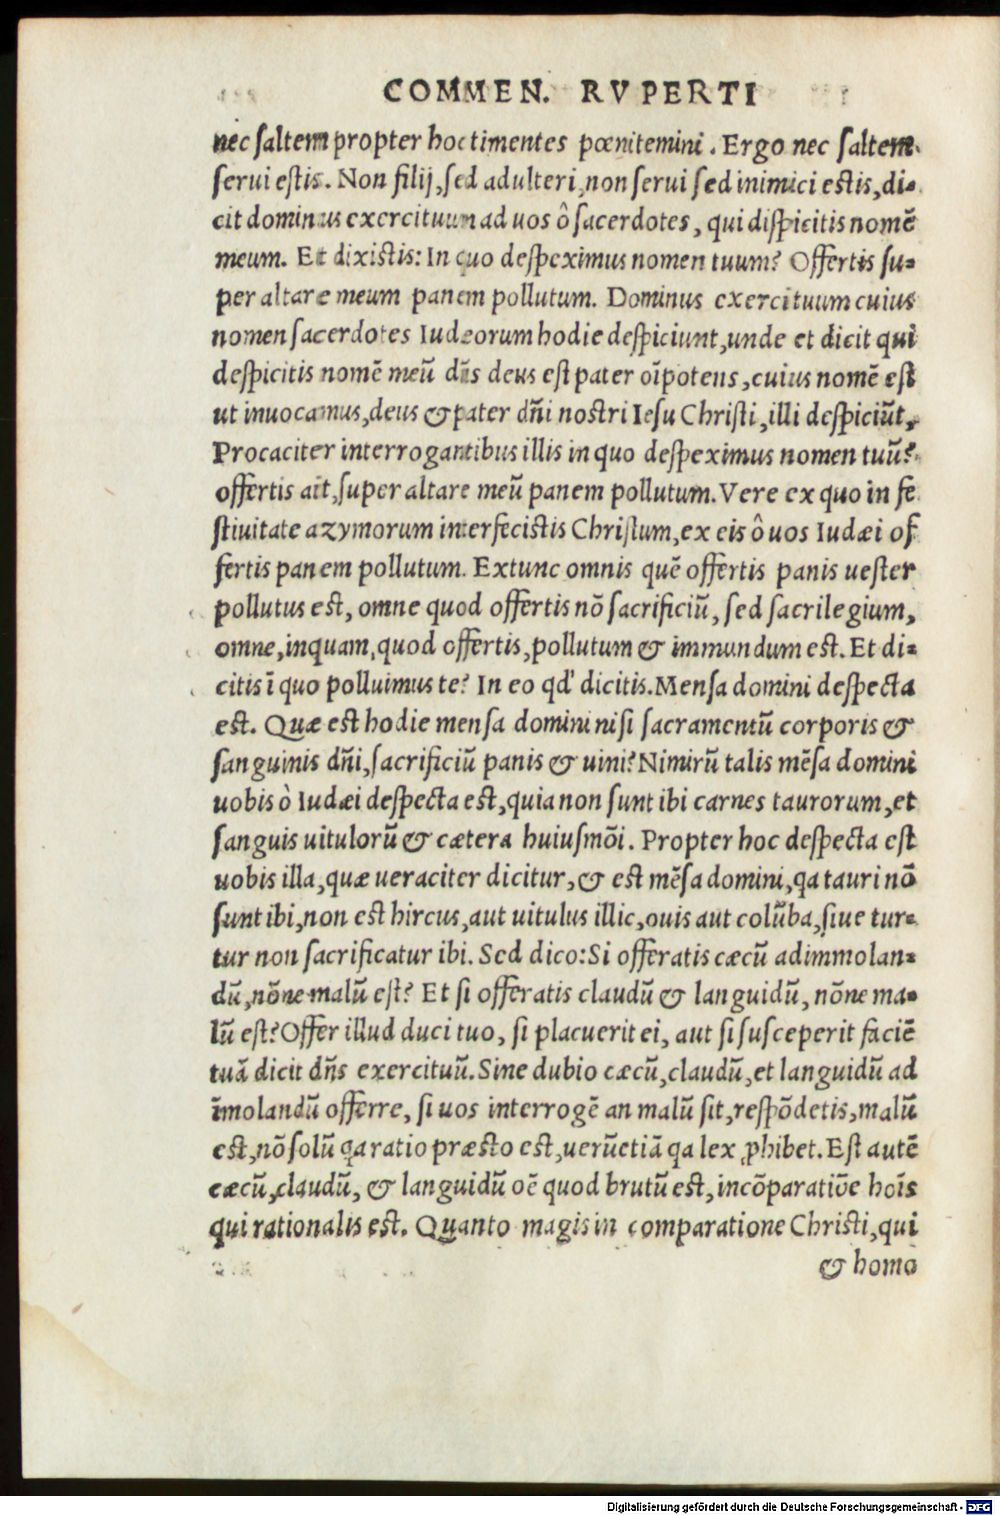 COMMEN. RVPERTI
nec saltem propter hoc timentes pœnitemini. Ergo nec saltem
serui estis. Non filij, sed adulteri, non serui sed inimici estis, di-
cit dominus exercituum ad uos ô sacerdotes, qui dispicitis nomē
meum. Et dixistis: In quo despeximus nomen tuum? Offertis su-
per altare meum panem pollutum. Dominus exercituum cuius
nomen sacerdotes Iudeorum hodie despiciunt, unde et dicit qui
despicitis nomē meū dn̄s deus est pater oīpotens, cuius nomē est
ut inuocamus, deus & pater dn̄i nostri Iesu Christi, illi despiciūt,
Procaciter interrogantibus illis in quo despeximus nomen tuū?
offertis ait, super altare meū panem pollutum. Vere ex quo in fe
stiuitate azymorum interfecistis Christum, ex eis ô uos Iudæi of
fertis panem pollutum. Extunc omnis quē offertis panis uester
pollutus est, omne quod offertis nō sacrificiū, sed sacrilegium,
omne, inquam, quod offertis, pollutum & immundum est. Et di-
citis ī quo polluimus te? In eo qd' dicitis. Mensa domini despecta
est. Quæ est hodie mensa domini nisi sacramentū corporis &
sanguinis dn̄i, sacrificiū panis & uini? Nimirū talis mēsa domini
uobis ô Iudæi despecta est, quia non sunt ibi carnes taurorum, et
sanguis uitulorū & cætera huiusmōi. Propter hoc despecta est
uobis illa, quæ ueraciter dicitur, & est mēsa domini, qa tauri nō
sunt ibi, non est hircus, aut uitulus illic, ouis aut colūba, siue tur-
tur non sacrificatur ibi. Sed dico: Si offeratis cæcū ad immolan-
dū, nōne malū est? Et si offeratis claudū & languidū, nōne ma-
lū est? Offer illud duci tuo, si placuerit ei, aut si susceperit faciē
tuā dicit dn̄s exercituū. Sine dubio cæcū, claudū, et languidū ad
īmolandū offerre, si uos interrogē an malū sit, respōdetis, malū
est, nō solū qa ratio præsto est, uerūetiā qa lex ꝓhibet. Est autē
cæcū, claudū, & languidū oē quod brutū est, incōparatiōe hoīs
qui rationalis est. Quanto magis in comparatione Christi, qui
& homo
Digitalisierung gefördert durch die Deutsche Forschungsgemeinschaft - DFG